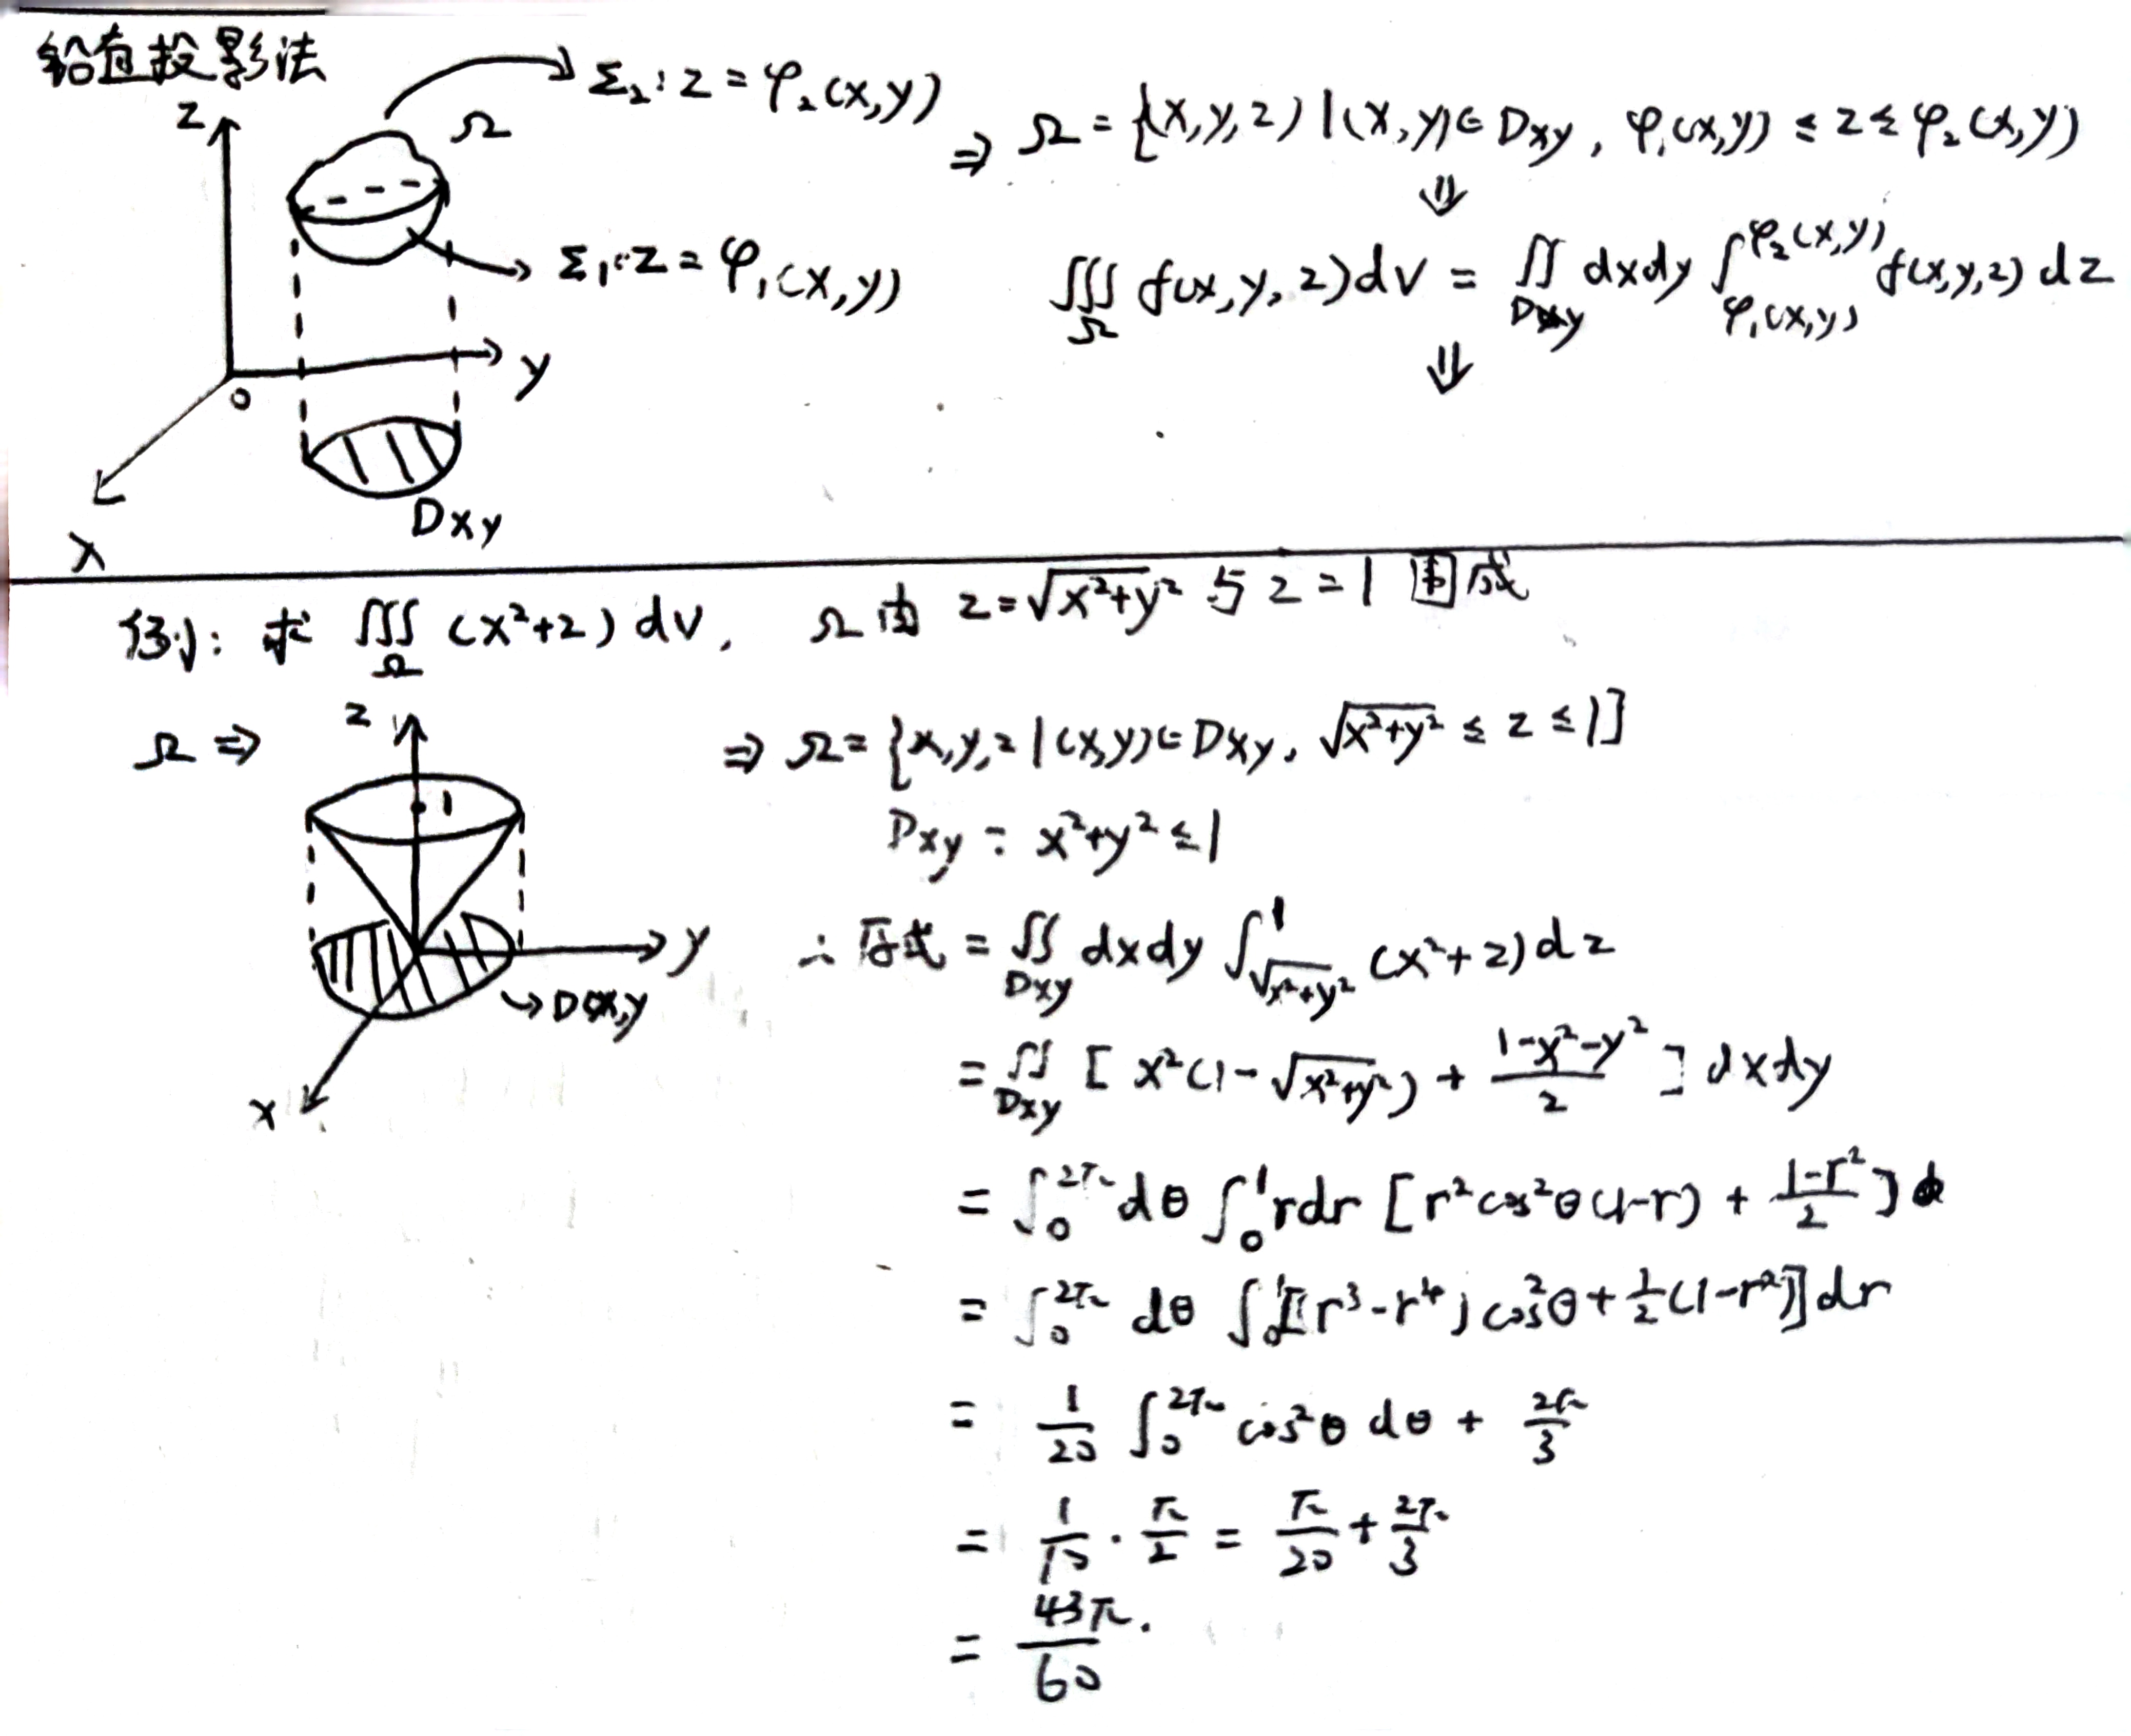 铅直投影法
Σ₂: z = φ₂(x,y)
z
Ω
⇒ Ω = {(x,y,z) | (x,y)∈ Dxy, φ₁(x,y) ≤ z ≤ φ₂(x,y)
⇓
Σ₁: z = φ₁(x,y)
∭Ω f(x,y,z)dv = ∬Dxy dxdy ∫_{φ₁(x,y)}^{φ₂(x,y)} f(x,y,z) dz
⇓
y
o
x
Dxy
例: 求 ∭Ω (x²+z) dv, Ω 由 z=√(x²+y²) 与 z=1 围成
Ω ⇒
z
1
y
x
↳ D(x,y
⇒ Ω = {x,y,z | (x,y)∈ Dxy, √(x²+y²) ≤ z ≤ 1]
Dxy: x²+y² ≤ 1
∴ 原式 = ∬Dxy dxdy ∫_{√(x²+y²)}^{1} (x²+z)dz
= ∬Dxy [ x²(1-√(x²+y²)) + (1-x²-y²)/2 ] dxdy
= ∫₀^{2π} dθ ∫₀¹ rdr [r²cos²θ(1-r) + (1-r²)/2]
= ∫₀^{2π} dθ ∫₀¹ [(r³-r⁴)cos²θ + ½(1-r²)] dr
= 1/20 ∫₀^{2π} cos²θ dθ + 2π/3
= 1/10 · π/2 = π/20 + 2π/3
= 43π/60.